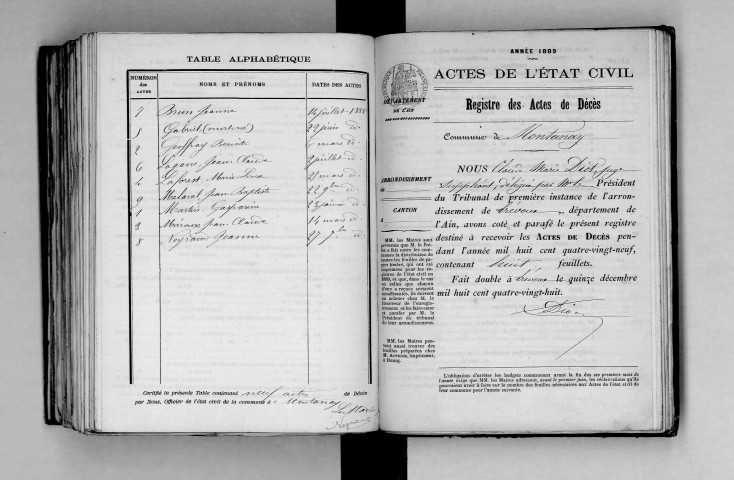 TABLE ALPHABÉTIQUE
NUMÉROS des ACTES
NOMS ET PRÉNOMS
DATES DES ACTES
7 Brun Jeanne 14 juillet 1888
Gabriel (mort né) 22 juin d°
2 Geoffray Benoit mars d°
6 Jean Claude 2 juillet d°
4 Laforest Marie 21 mars d°
9 Jean Baptiste 22 9bre d°
1 Martin
3 Jean Claude 14 mars d°
8 Jeanne 27 7bre d°
Certifié la présente Table contenant neuf actes de Décès
par Nous, Officier de l'état civil de la commune de Montanay
Le Maire
ANNÉE 1889
ACTES DE L'ÉTAT CIVIL
DÉPARTEMENT
DE L'AIN
Registre des Actes de Décès
Commune de Montanay
ARRONDISSEMENT
CANTON
NOUS Claude Marie Diot, juge
suppléant, délégué par Mr le Président
du Tribunal de première instance de l'arron-
dissement de Trévoux, département de
l'Ain, avons coté et parafé le présent registre
destiné à recevoir les ACTES DE DÉCÈS pen-
dant l'année mil huit cent quatre-vingt-neuf,
contenant huit feuillets.
Fait double à Trévoux le quinze décembre
mil huit cent quatre-vingt-huit.
MM. les Maires sont
prévenus que M. le Pré-
fet a fait entre les com-
munes la distribution de
toutes les feuilles de pa-
pier timbré, qui ont été
imprimées pour les re-
gistres de l'état civil en
1889, et que, dans le cas
où celles que chacun
d'eux a reçues seraient
insuffisantes, ils doivent
en acheter chez M. le
Receveur de l'enregis-
trement, et les faire coter
et parafer par M. le
Président du tribunal
de leur arrondissement.
MM. les Maires peu-
vent aussi trouver des
feuilles préparées chez
M. imprimeur,
à Bourg.
L'obligation d'arrêter les budgets communaux avant la fin des six premiers mois de
l'année exige que MM. les Maires adressent, avant le premier juin, les réclamations qu'ils
pourraient avoir à faire sur le nombre des feuilles nécessaires aux Actes de l'état civil de
leur commune pour l'année suivante.